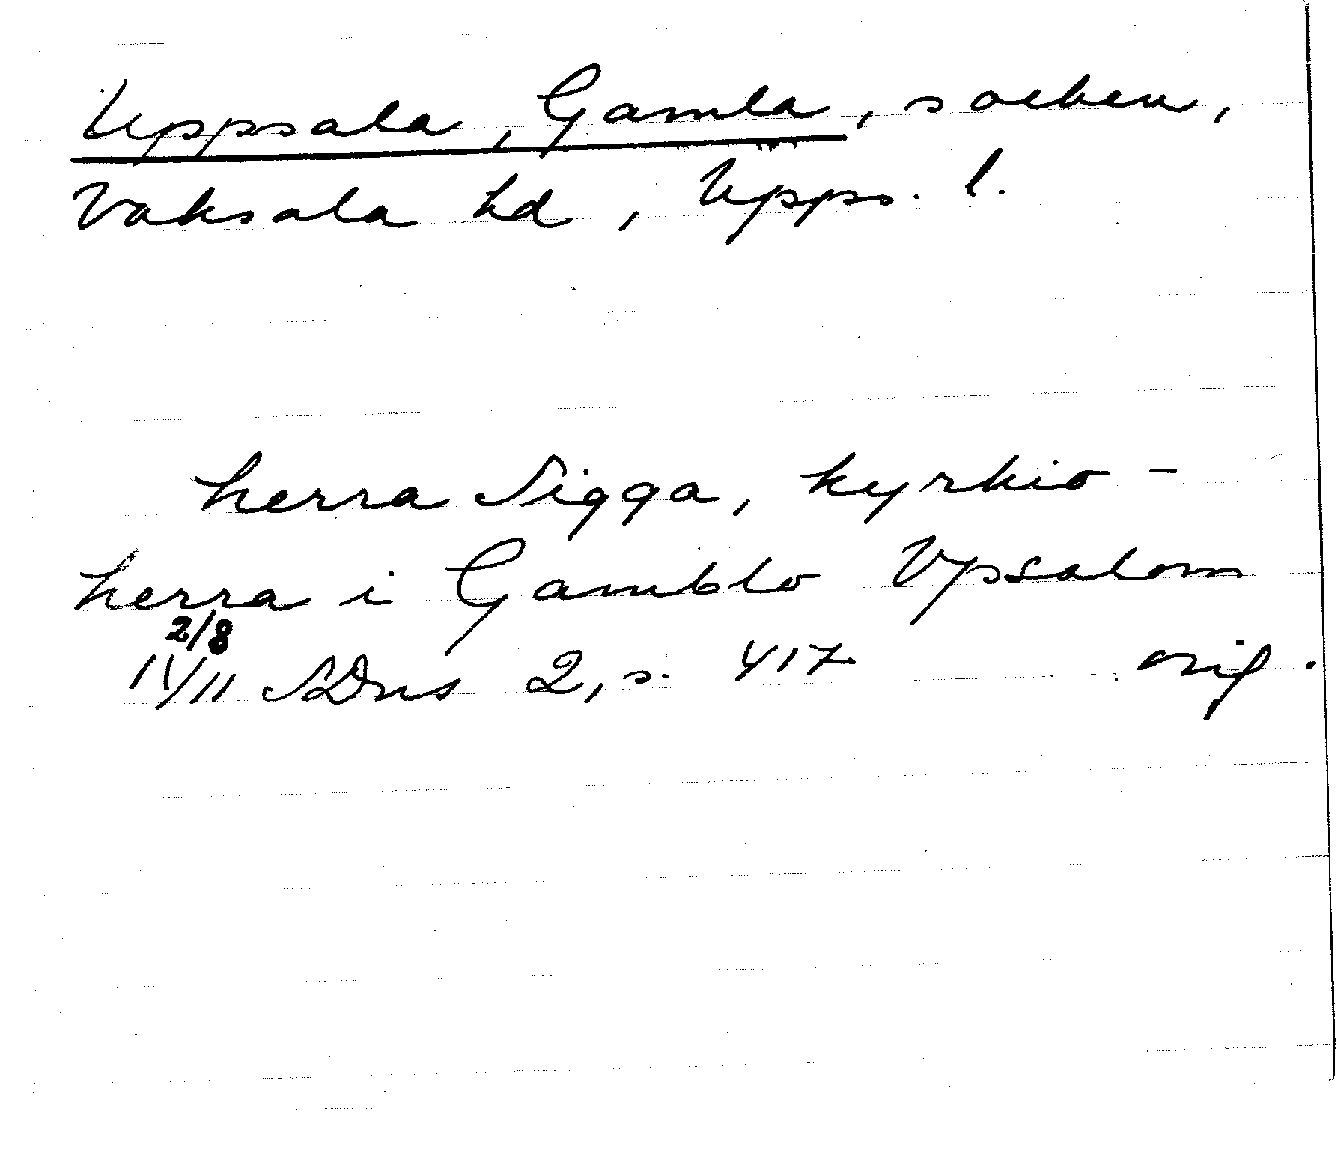 Uppsala, Gamla, socken,
Vaksala hd, Upps. l.
herra Sigga, kyrkio-
herra i Gamblo Vpsalom
2/8
14/11 SDns 2, s. 417 orig.